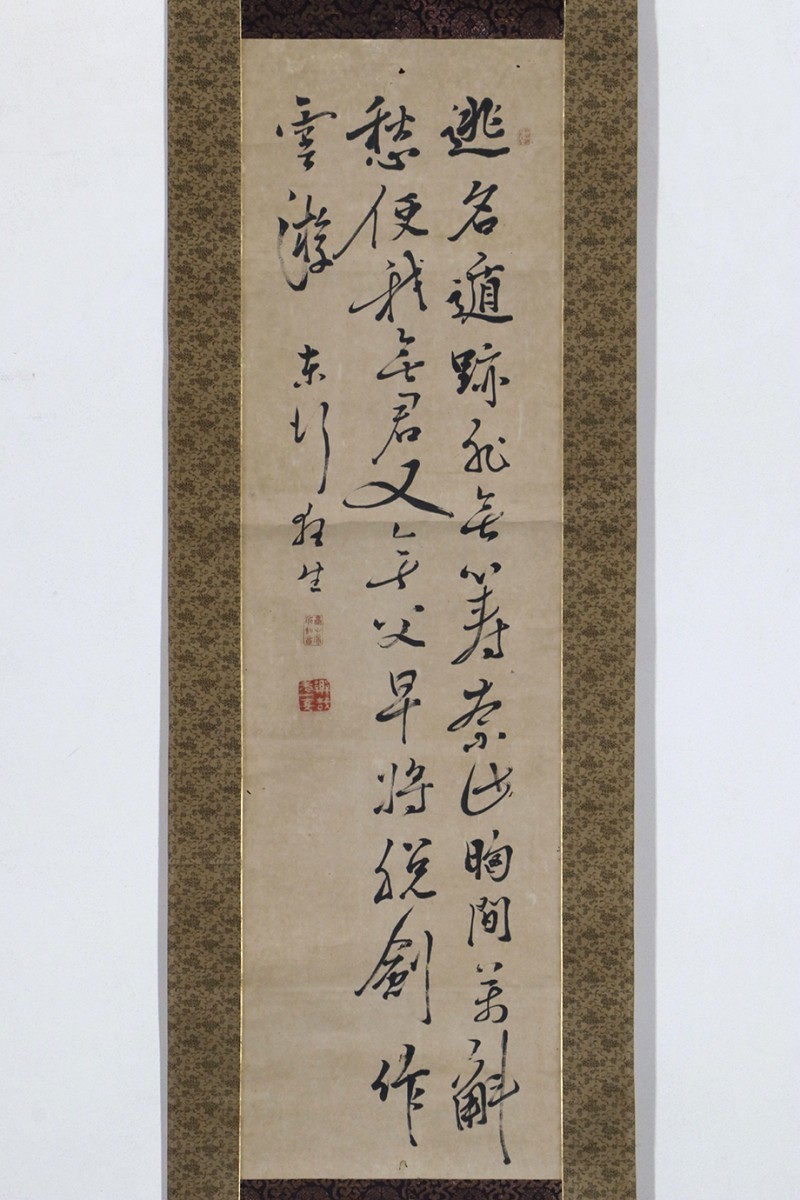 逃名遁跡非無籌奈此胸間萬斛
愁便我無君又無父早將脱劍作
雲游 東行狂生